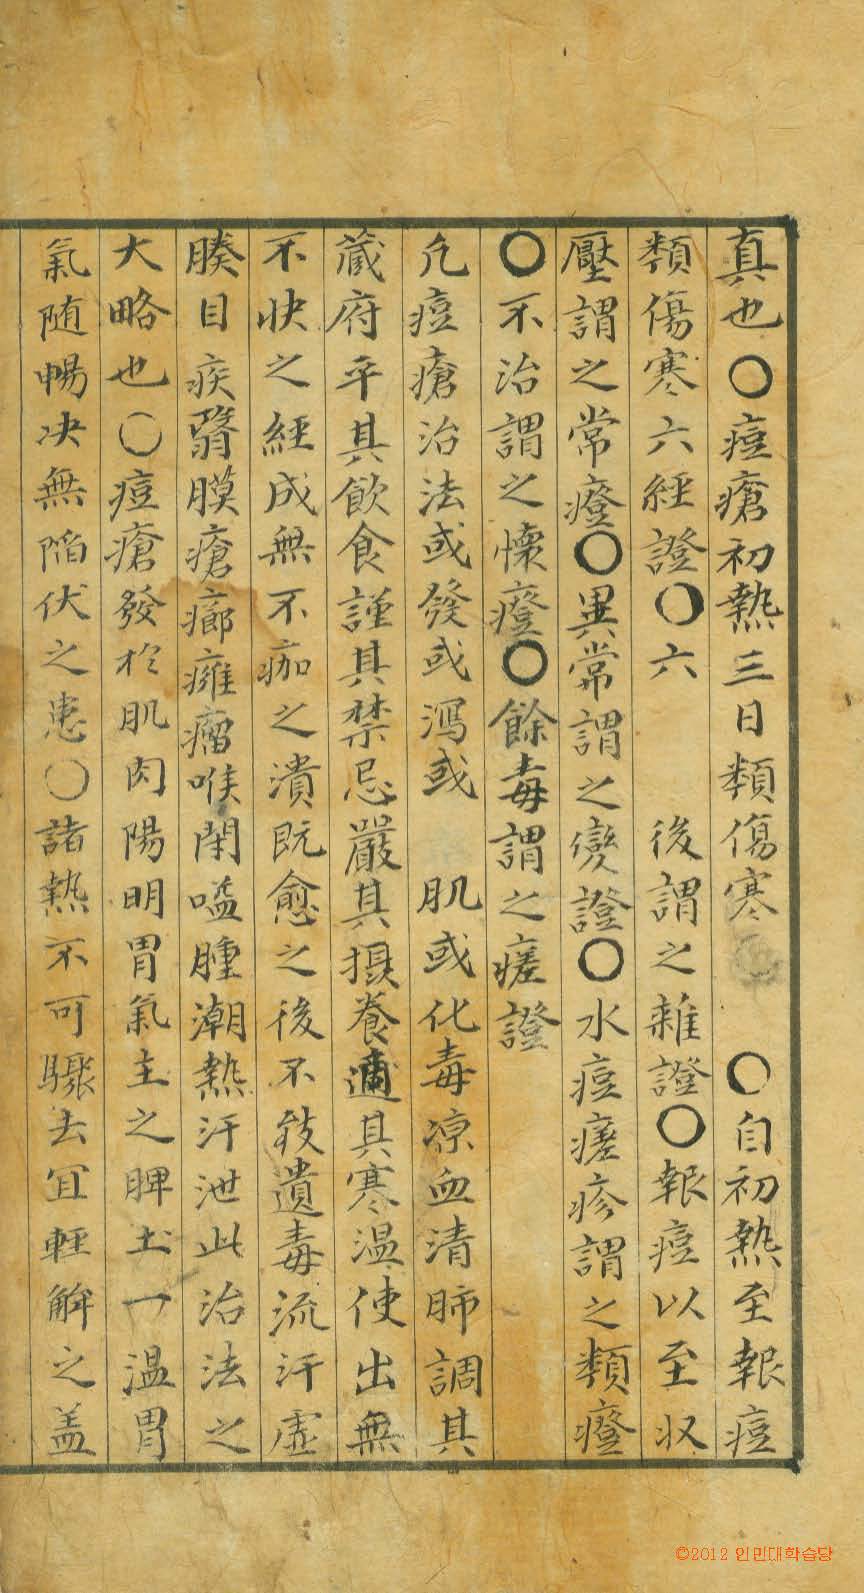 真也○痘瘡初熱三日類傷寒○自初熱至報痘
類傷寒六經證○六後謂之雜證○報痘以至収
壓謂之常癦○異常謂之變證○水痘瘥疹謂之類癦
○不治謂之懷癦○餘毒謂之瘥證
凢痘瘡治法或發或瀉或肌或化毒凉血清肺調其
藏府平其飲食謹其禁忌嚴其摂養適其寒温使出無
不快之經成無不痂之潰旣愈之後不致遺毒流汗虛
膝目疾翳膜瘡癤癰瘤喉閉嗌腫潮熱汗泄此治法之
大略也○痘瘡發於肌肉陽明胃氣主之脾土一温胃
氣随暢决無陷伏之患○諸熱不可驟去宜輕解之盖
©2012 인민대학습당